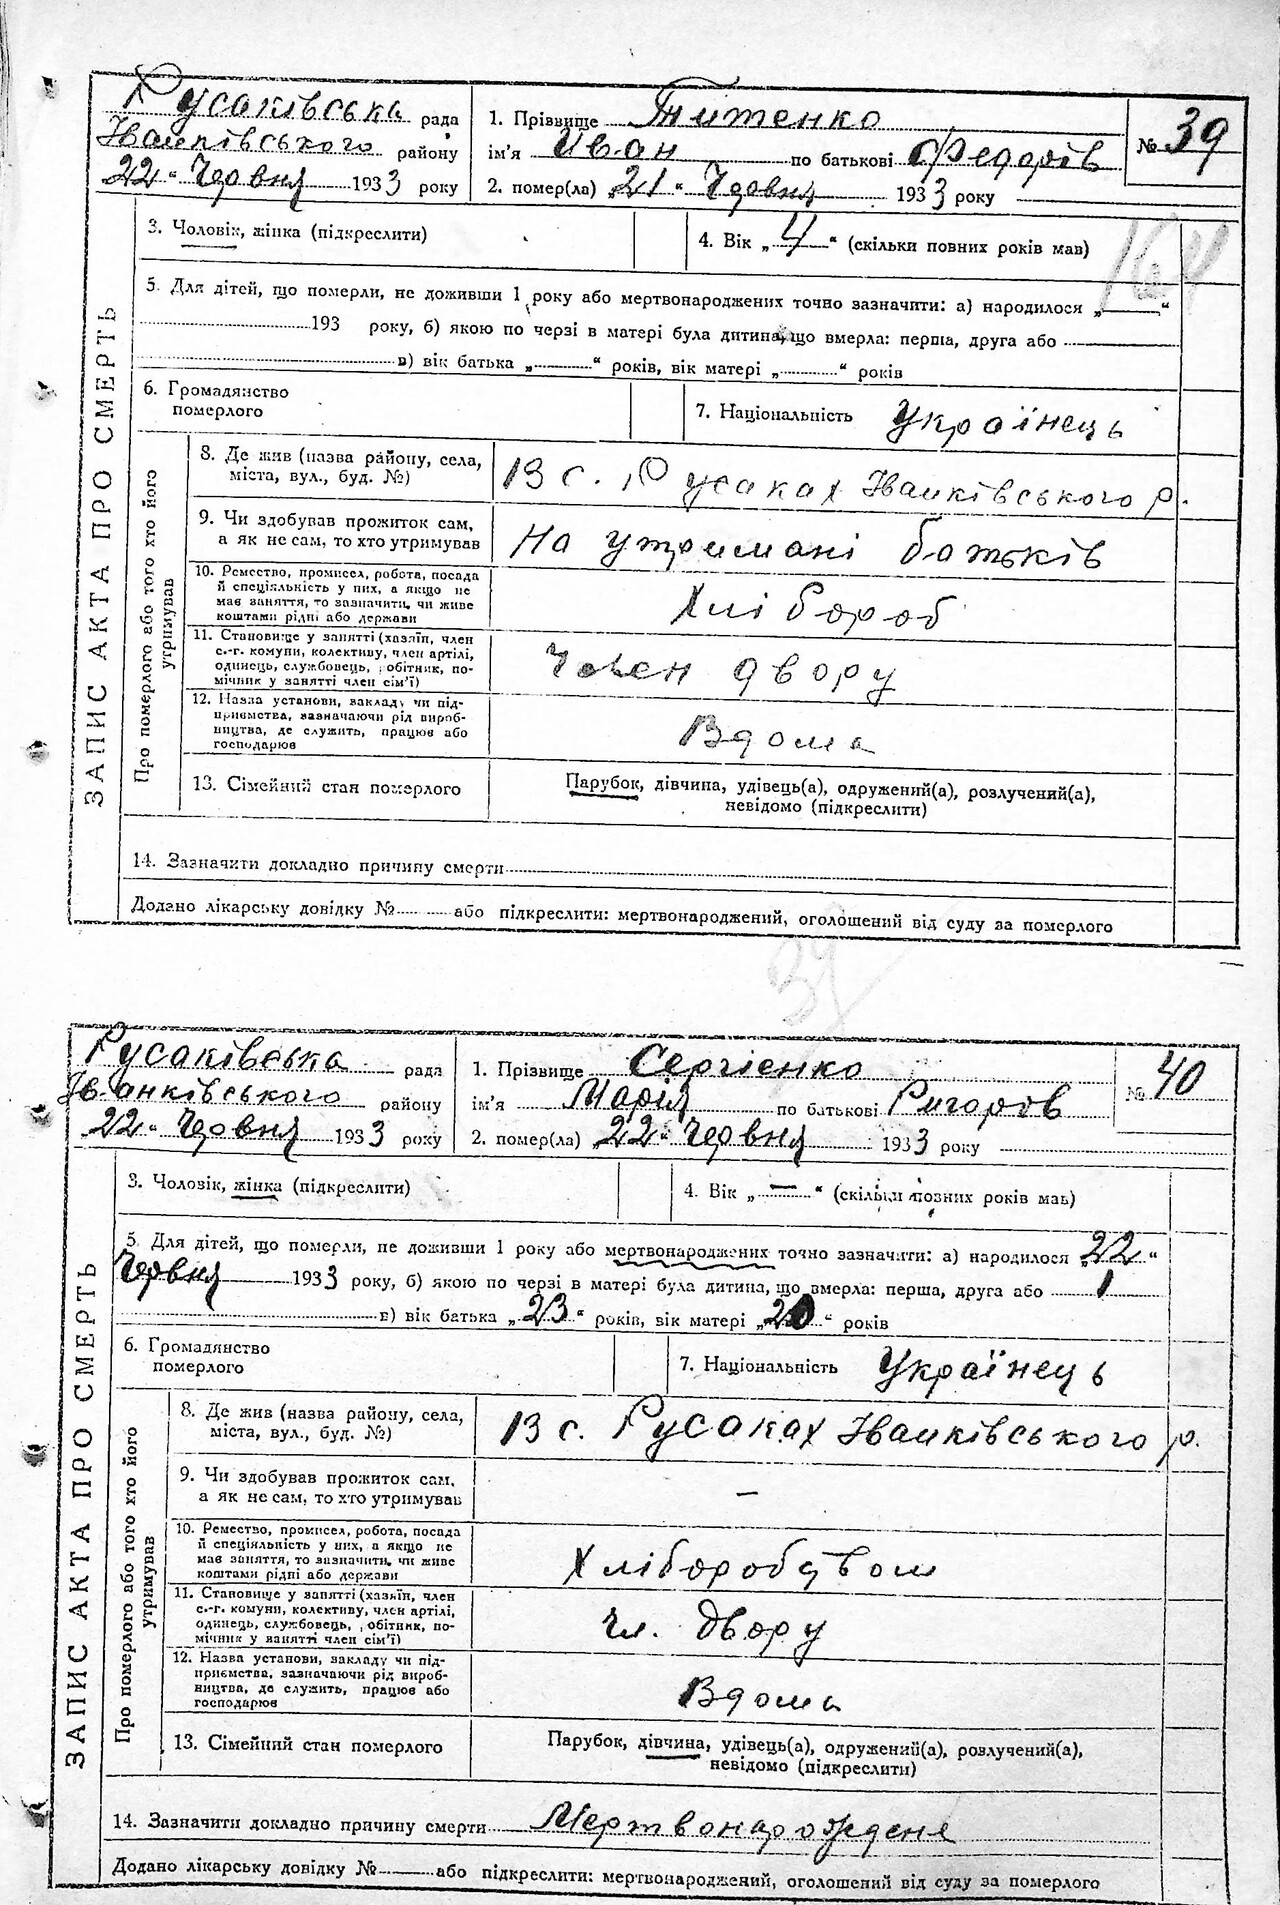 Русаківська рада
Іванківського району
22" Червня 1933 року
1. Прізвище Титенко
ім'я Иван по батькові Федорів
2. помер(ла) „21" Червня 1933 року
№ 39
3. Чоловік, жінка (підкреслити)
4. Вік „4" (скільки повних років мав)
164
5. Для дітей, що померли, не доживши 1 року або мертвонароджених точно зазначити: а) народилося „ "
193 року, б) якою по черзі в матері була дитина, що вмерла: перша, друга або
в) вік батька „ " років, вік матері „ " років
6. Громадянство
померлого
7. Національність Українець
ЗАПИС АКТА ПРО СМЕРТЬ
Про померлого або того хто його
утримував
8. Де жив (назва району, села,
міста, вул., буд. №)
В с. Русаках Іванківського р.
9. Чи здобував прожиток сам,
а як не сам, то хто утримував
На утримані батьків
10. Ремество, промисел, робота, посада
й спеціяльність у них, а якщо не
має заняття, то зазначити, чи живе
коштами рідні або держави
Хлібороб
11. Становище у занятті (хазяїн, член
с.-г. комуни, колективу, член артілі,
одинець, службовець, робітник, по-
мічник у занятті член сім'ї)
Член двору
12. Назва установи, закладу чи під-
приємства, зазначаючи рід вироб-
ництва, де служить, працює або
господарює
Вдома
13. Сімейний стан померлого
Парубок, дівчина, удівець(а), одружений(а), розлучений(а),
невідомо (підкреслити)
14. Зазначити докладно причину смерти
Додано лікарську довідку № або підкреслити: мертвонароджений, оголошений від суду за померлого
39
Русаківська рада
Іванківського району
„22" Червня 1933 року
1. Прізвище Сергієнко
ім'я Марія по батькові Ригоров
2. помер(ла) „22" Червня 1933 року
№ 40
3. Чоловік, жінка (підкреслити)
4. Вік „—" (скільки повних років мав)
5. Для дітей, що померли, не доживши 1 року або мертвонароджених точно зазначити: а) народилося „22"
Червня 1933 року, б) якою по черзі в матері була дитина, що вмерла: перша, друга або 1
в) вік батька „23" років, вік матері „20" років
6. Громадянство
померлого
7. Національність Українець
ЗАПИС АКТА ПРО СМЕРТЬ
Про померлого або того хто його
утримував
8. Де жив (назва району, села,
міста, вул., буд. №)
В с. Русаках Іванківського р.
9. Чи здобував прожиток сам,
а як не сам, то хто утримував
—
10. Ремество, промисел, робота, посада
й спеціяльність у них, а якщо не
має заняття, то зазначити, чи живе
коштами рідні або держави
Хліборобством
11. Становище у занятті (хазяїн, член
с.-г. комуни, колективу, член артілі,
одинець, службовець, робітник, по-
мічник у занятті член сім'ї)
Чл. двору
12. Назва установи, закладу чи під-
приємства, зазначаючи рід вироб-
ництва, де служить, працює або
господарює
Вдома
13. Сімейний стан померлого
Парубок, дівчина, удівець(а), одружений(а), розлучений(а),
невідомо (підкреслити)
14. Зазначити докладно причину смерти Мертвонарождене
Додано лікарську довідку № або підкреслити: мертвонароджений, оголошений від суду за померлого